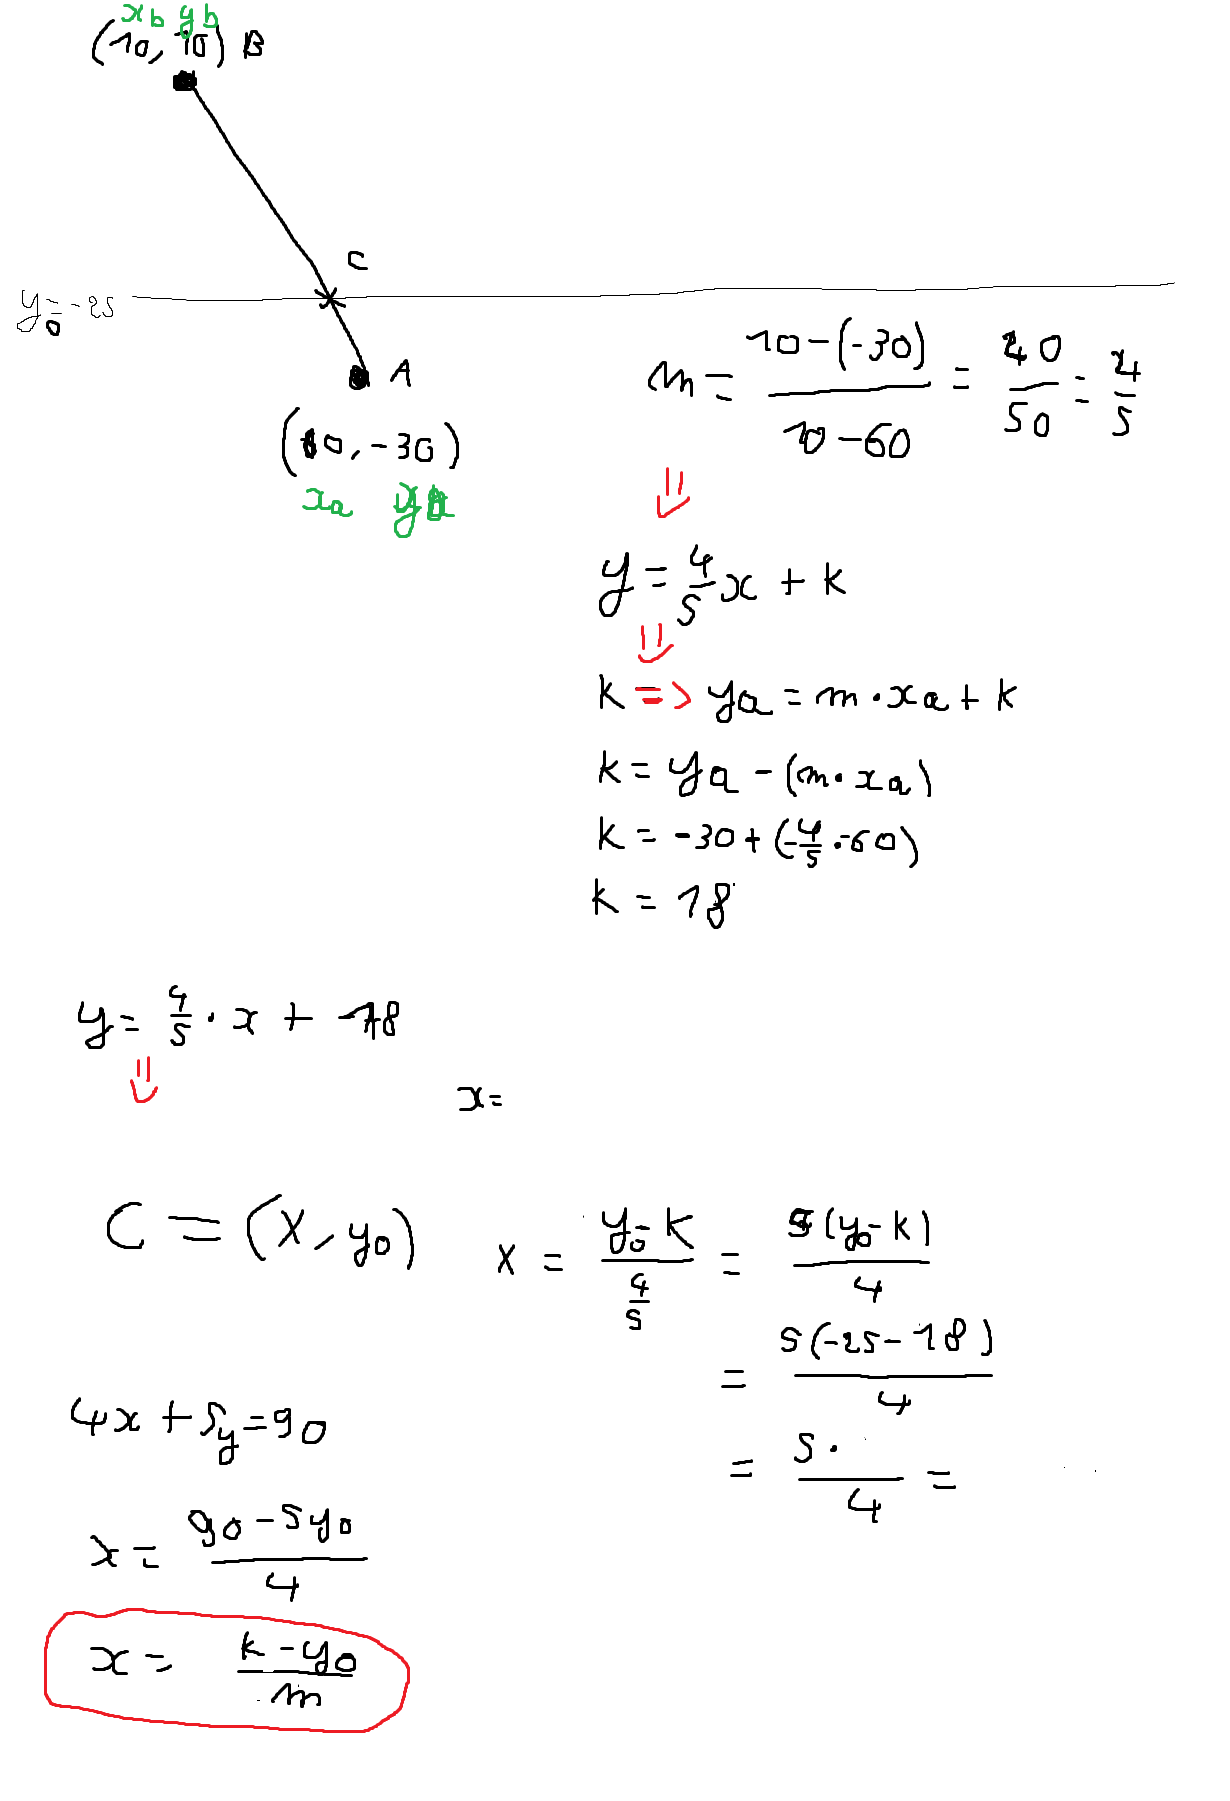 xb yb
(10, 10) B
C
y₀=-25
A
(60, -30)
xa ya
m = \frac{10-(-30)}{10-60} = \frac{40}{50} = \frac{4}{5}
⇓
y = \frac{4}{5}x + k
⇓
k => ya = m·xa + k
k = ya - (m·xa)
k = -30 + (-\frac{4}{5}·-60)
k = 18
y = \frac{4}{5}·x + 18
⇓
x=
C = (X, y₀)
X = \frac{y₀-k}{\frac{4}{5}} = \frac{5(y₀-k)}{4}
= \frac{5(-25-18)}{4}
= \frac{5·}{4} =
4x + 5y = 90
x = \frac{90-5y₀}{4}
x = \frac{k-y₀}{m}